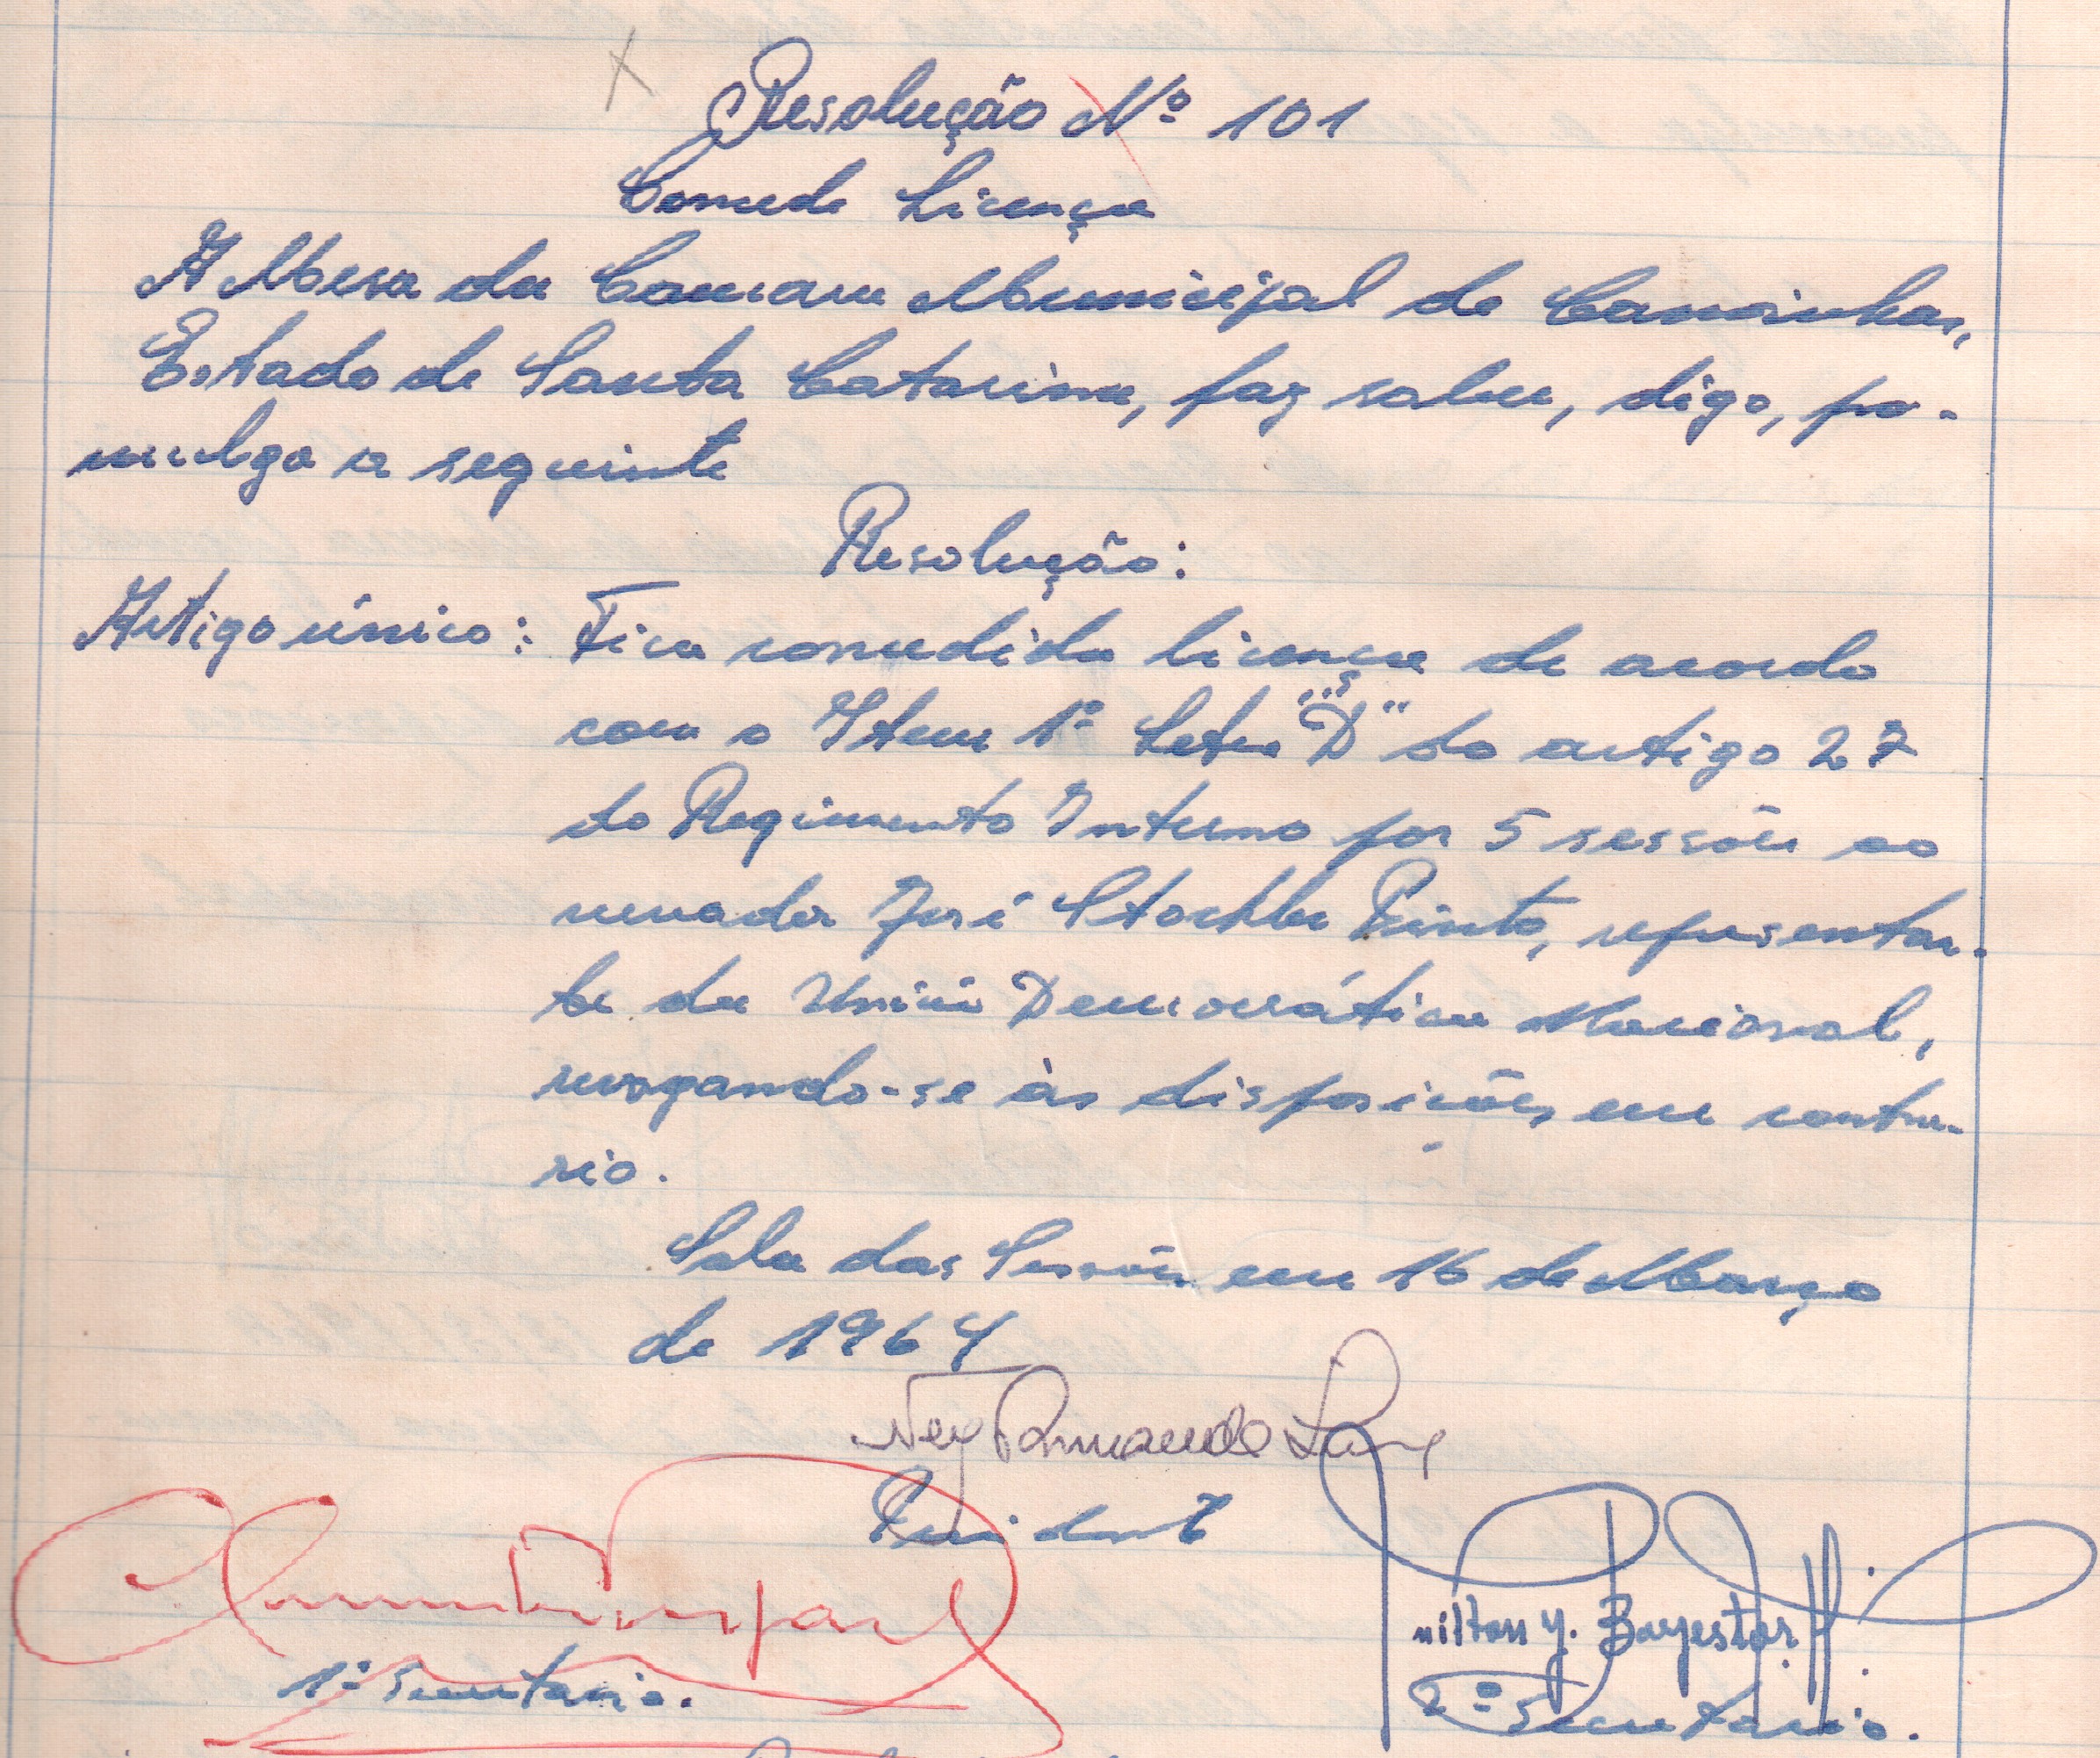 Resolução Nº 101
Concede Licença
A Mesa da Camara Municipal de Canoinhas,
Estado de Santa Catarina, faz saber, digo, pro-
mulga a seguinte
Resolução:
Artigo único: Fica concedida licença de acordo
com o Item 1º Letra "D" do artigo 27
do Regimento Interno por 5 sessões ao
vereador José Stockler Pinto, representan-
te da União Democrática Nacional,
revogando-se às disposições em contra-
rio.
Sala das Sessões em 16 de Março
de 1964
Ney Armando
Presidente
1º Secretario.
nilton y. Bayestorff.
2º Secretario.